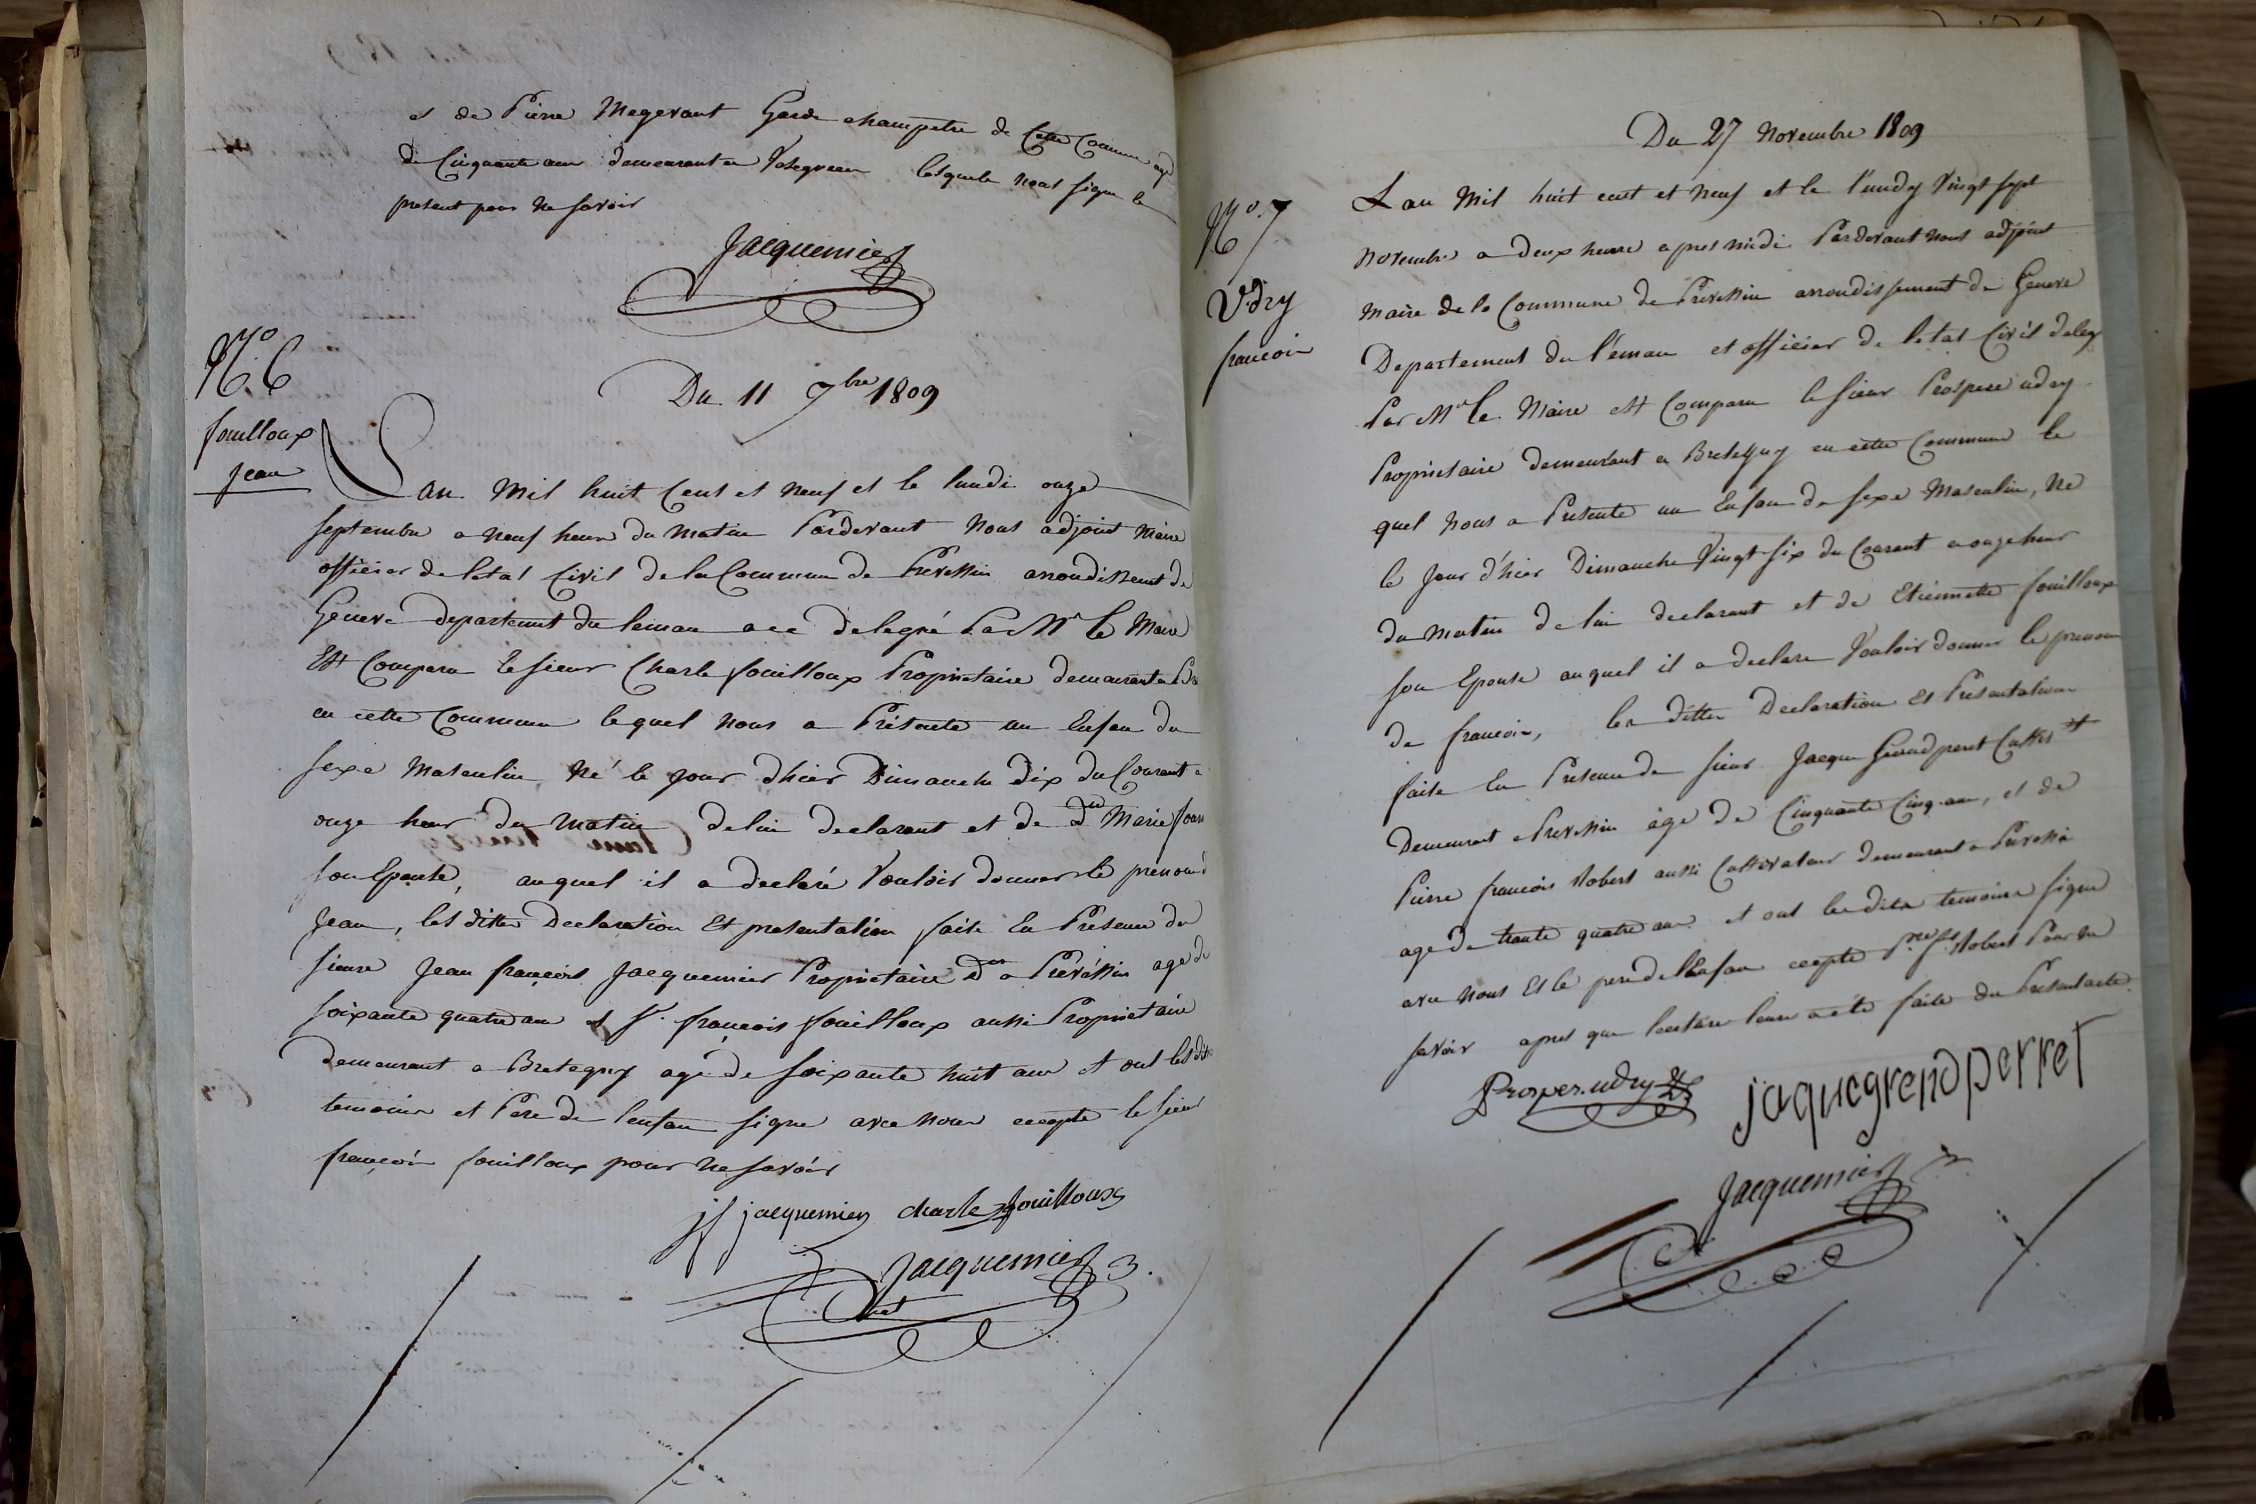 et de Pierre Megevant Garde champetre de Cette Commune agé
de Cinquante ans demeurant a Vesegnin lesquels nont signe le
present pour ne savoir
Jacquemier
No. 6
fouilloux
Jean
Du 11 7bre 1809
Lan Mil huit Cent et Neuf et le lundi onze
septembre a neuf heure du matin Pardevant Nous adjoint Maire
officier de letat Civil de la Commune de Prevessin arrondissement de
Geneve departement du leman a ce delegué Par Mr Le Maire
Est Comparu le sieur Charle fouilloux Propriétaire demeurant a
en cette Commune lequel nous a Présenté un Enfan du
sexe Masculin Né le Jour dhier Dimanche dix du Courant a
onze heur du Matin de lui declarant et de Marie
son Epouse, auquel il a declaré Vouloir donner le prenom d
Jean, les dittes Declaration Et presentation faite En Présence du
sieur Jean françois Jacquemier Propriétaire Dt a Prévéssin age de
soixante quatre ans et Sr. françois fouilloux aussi Propriétaire
demeurant a Bretegny agé de soixante huit ans et ont les dits
temoins et Pere de lenfan signe avec nous excepte le sieur
françois fouilloux pour ne savoir
jf jacquemier charle fouilloux
Jacquemier
Du 27 Novembre 1809
No. 7
Vdry
francois
Lan Mil huit cent et Neuf et le lundy Vingt sept
Novembre a deux heure apres midi Pardevant Nous adjoint
Maire de la Commune de Prevessin arrondissement de Geneve
Departement du léman et officier de letat Civil deleg
Par Mr le Maire est Comparu le sieur Prospere udry
Propriétaire demeurant a Bretegny en cette Commune le
quel Nous a Présenté un Enfan de sexe Masculin, Né
le Jour d'hier Dimanche Vingt six du Courant a onze heur
du Matin de lui declarant et de Etiennette fouilloux
son Epouse auquel il a declare Vouloir donner le prenom
de francois, les dittes Declaration Et Présentation
faite En Présence de sieur Jacque Grandperret
Demeurant a Prevessin agé de Cinquante Cinq ans, et de
Pierre françois Robert aussi Cultivateur demeurant a Prevessin
age de trante quatre ans et ont les dits temoins signe
avec Nous Et le pere de l'Enfan excepte Pre fs Robert Pour ne
savoir apres que lecture leur a été faite du Présent acte.
Prosper. udry
jaquegrendperret
Jacquemier